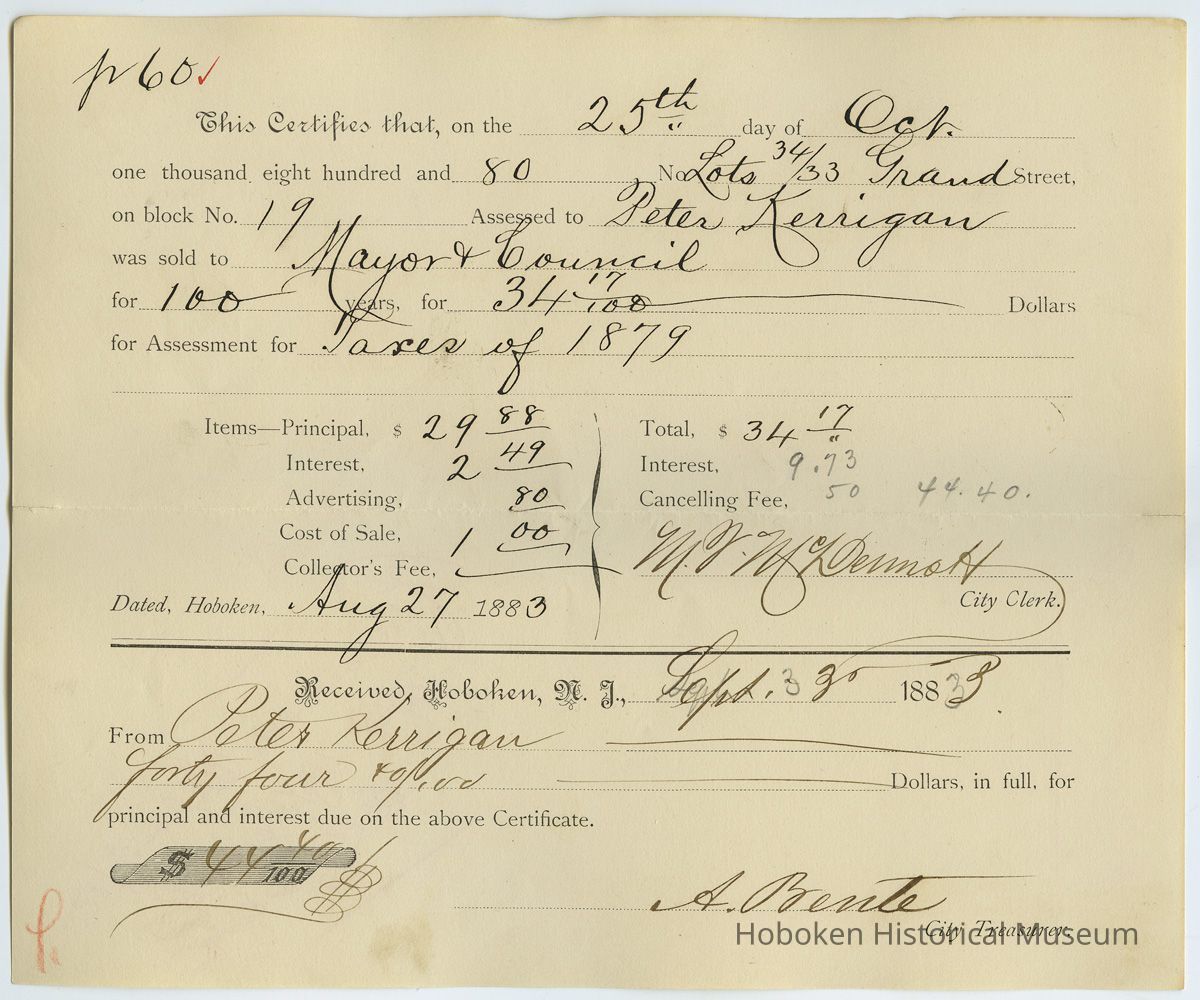 p 60 ✓
This Certifies that, on the 25th day of Oct.
one thousand eight hundred and 80 No Lots 34/33 Grand Street,
on block No. 19 Assessed to Peter Kerrigan
was sold to Mayor & Council
for 100 years, for 34 17/100 Dollars
for Assessment for Taxes of 1879
Items—Principal, $ 29 88
Interest, 2 49
Advertising, 80
Cost of Sale, 1 00
Collector's Fee,
Dated, Hoboken, Aug 27 1883
Total, $ 34 17
Interest, 9.73
Cancelling Fee, 50 44.40.
M. V. McDermott
City Clerk.
Received, Hoboken, N. J., Sept. 3 1883
From Peter Kerrigan
forty four 40/100 Dollars, in full, for
principal and interest due on the above Certificate.
$ 44 40/100
A. Bente
City Treasurer.
Hoboken Historical Museum